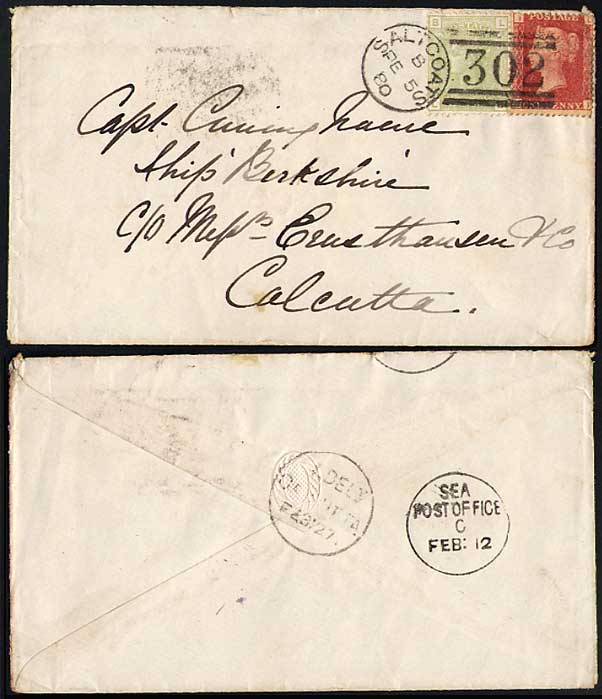 SALTCOATS
B
FE 5
80
302
B L
POSTAGE
PENNY
Capt. Cuninghame
Ship Berkshire
c/o Messrs Ernsthausen & Co
Calcutta.
DELY
SEA
POST OFFICE
C
FEB: 12